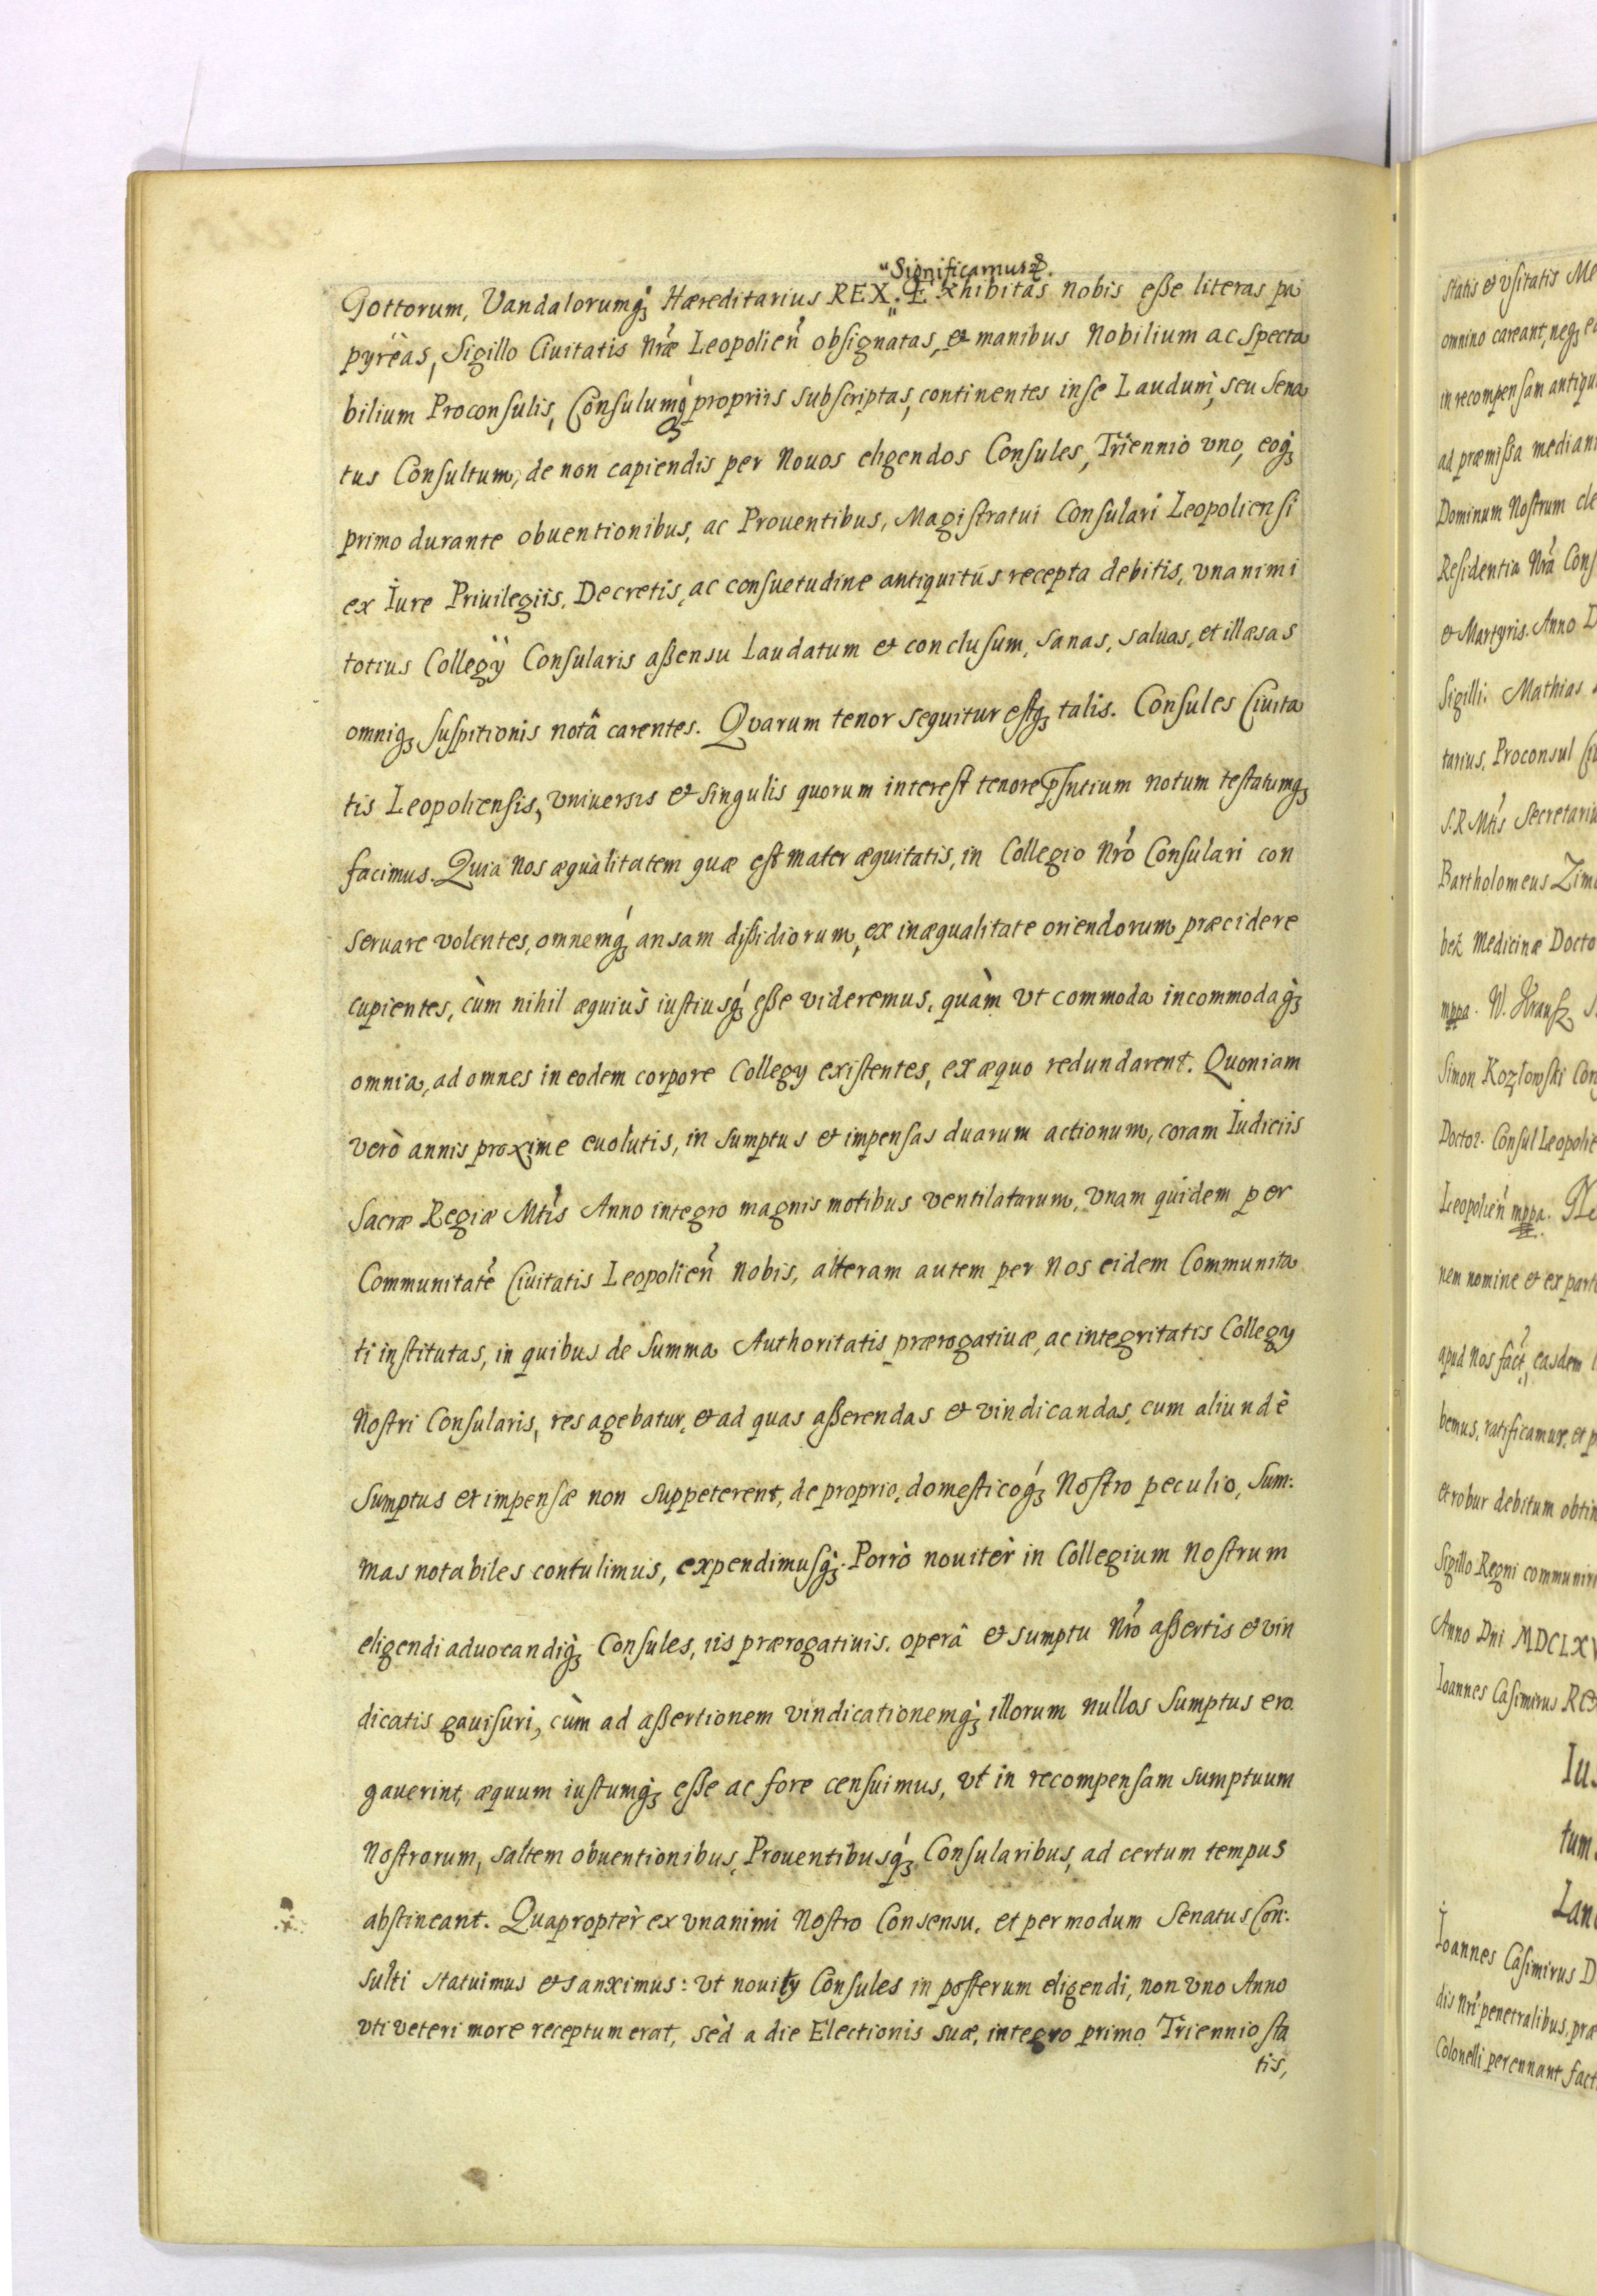 "Significamus &.
Gottorum, Vandalorumq3 Hæreditarius REX." Exhibitas nobis eße literas pa
pyreas, Sigillo Ciuitatis Nræ Leopolien obsignatas, et manibus Nobilium ac specta
bilium Proconsulis, Consulumq3 propriis subscriptas, continentes in se Laudum, seu Sena
tus Consultum, de non capiendis per Nouos eligendos Consules, Triennio vno, eoq3
primo durante obuentionibus, ac Prouentibus, Magistratui Consulari Leopoliensi
ex Iure Priuilegiis, Decretis, ac consuetudine antiquitùs recepta debitis, vnanimi
totius Collegÿ Consularis aßensu Laudatum et conclusum, sanas, saluas, et illæsas
omniq3 suspitionis notâ carentes. Qvarum tenor sequitur estq3 talis. Consules Ciuita
tis Leopoliensis, vniuersis et singulis quorum interest tenore psntium notum testatumq3
facimus. Quia Nos æqualitatem quæ est mater æquitatis, in Collegio Nro Consulari con
seruare volentes, omnemq3 ansam dißidiorum, ex inæqualitate oriendorum præcidere
cupientes, cùm nihil æquiùs iustiusq3 eße videremus, quàm vt commoda incommodaq3
omnia, ad omnes in eodem corpore Collegy existentes, ex æquo redundarent. Quoniam
verò annis proxime euolutis, in sumptus et impensas duarum actionum, coram Iudiciis
Sacræ Regiæ Mtis Anno integro magnis motibus ventilatarum, vnam quidem per
Communitate Ciuitatis Leopolien Nobis, alteram autem per Nos eidem Communita
ti institutas, in quibus de summa Authoritatis prærogatiuæ, ac integritatis Collegy
Nostri Consularis, res agebatur, et ad quas aßerendas et vindicandas, cum aliundè
sumptus et impensæ non suppeterent, de proprio, domesticoq3 Nostro peculio, sum:
mas notabiles contulimus, expendimusq3. Porrò nouitèr in Collegium Nostrum
eligendi aduocandiq3 Consules, iis prærogatiuis, operâ et sumptu Nro aßertis et vin
dicatis gauisuri, cùm ad aßertionem vindicationemq3 illorum nullos sumptus ero
gauerint, æquum iustumq3 eße ac fore censuimus, vt in recompensam sumptuum
Nostrorum, saltem obuentionibus, Prouentibusq3 Consularibus, ad certum tempus
abstineant. Quapropter ex vnanimi Nostro Consensu, et per modum Senatus Con:
sulti statuimus et sanximus: vt nouity Consules in posterum eligendi, non vno Anno
vti veteri more receptum erat, sèd a die Electionis suæ, integro primo Triennio sta
tis,
statis et vsitatis Me
omnino careant, neq3 e
in recompensam antiqu
ad præmißa median
Dominum Nostrum cle
Residentia Nra Cons
et Martyris. Anno D
Sigilli. Mathias
tarius, Proconsul Ciu
S.R Mtis Secretariu
Bartholomeus Zim
bek Medicinæ Docto
mppa. W. Hrausz S.
Simon Kozłowski Con
Doctor. Consul Leopolie
Leopolien mppa.
nem nomine et ex part
apud Nos fact, easdem l
bemus, ratificamur, et p
et robur debitum obtin
Sigillo Regni communiri
Anno Dni MDCLXV
Ioannes Casimirus Re
Ius
tum
Lan
Ioannes Casimirus D
dis Nri penetralibus, præ
Colonelli perennant fact